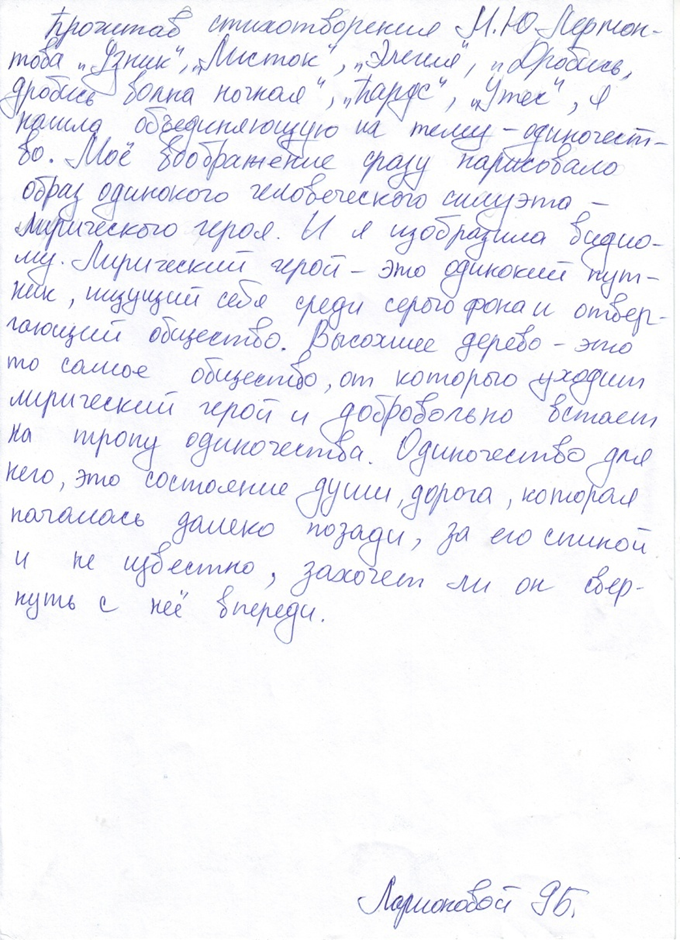 Прочитав стихотворения М.Ю Лермон-
това „Узник", „Листок", „Элегия", „Дробись,
дробись волна ночная", „Парус", „Утес", я
нашла объединяющую их тему - одиночест-
во. Моё воображение сразу нарисовало
образ одинокого человеческого силуэта -
лирического героя. И я изобразила видно-
му. Лирический герой - это одинокий пут-
ник, ищущий себя среди серого фона и отвер-
гающий общество. Высохшее дерево - это
то самое общество, от которого уходит
лирический герой и добровольно встает
на тропу одиночества. Одиночество для
него, это состояние души, дорога, которая
началась далеко позади, за его спиной
и не известно, захочет ли он свер-
нуть с неё впереди.
Ларионовой 9Б.